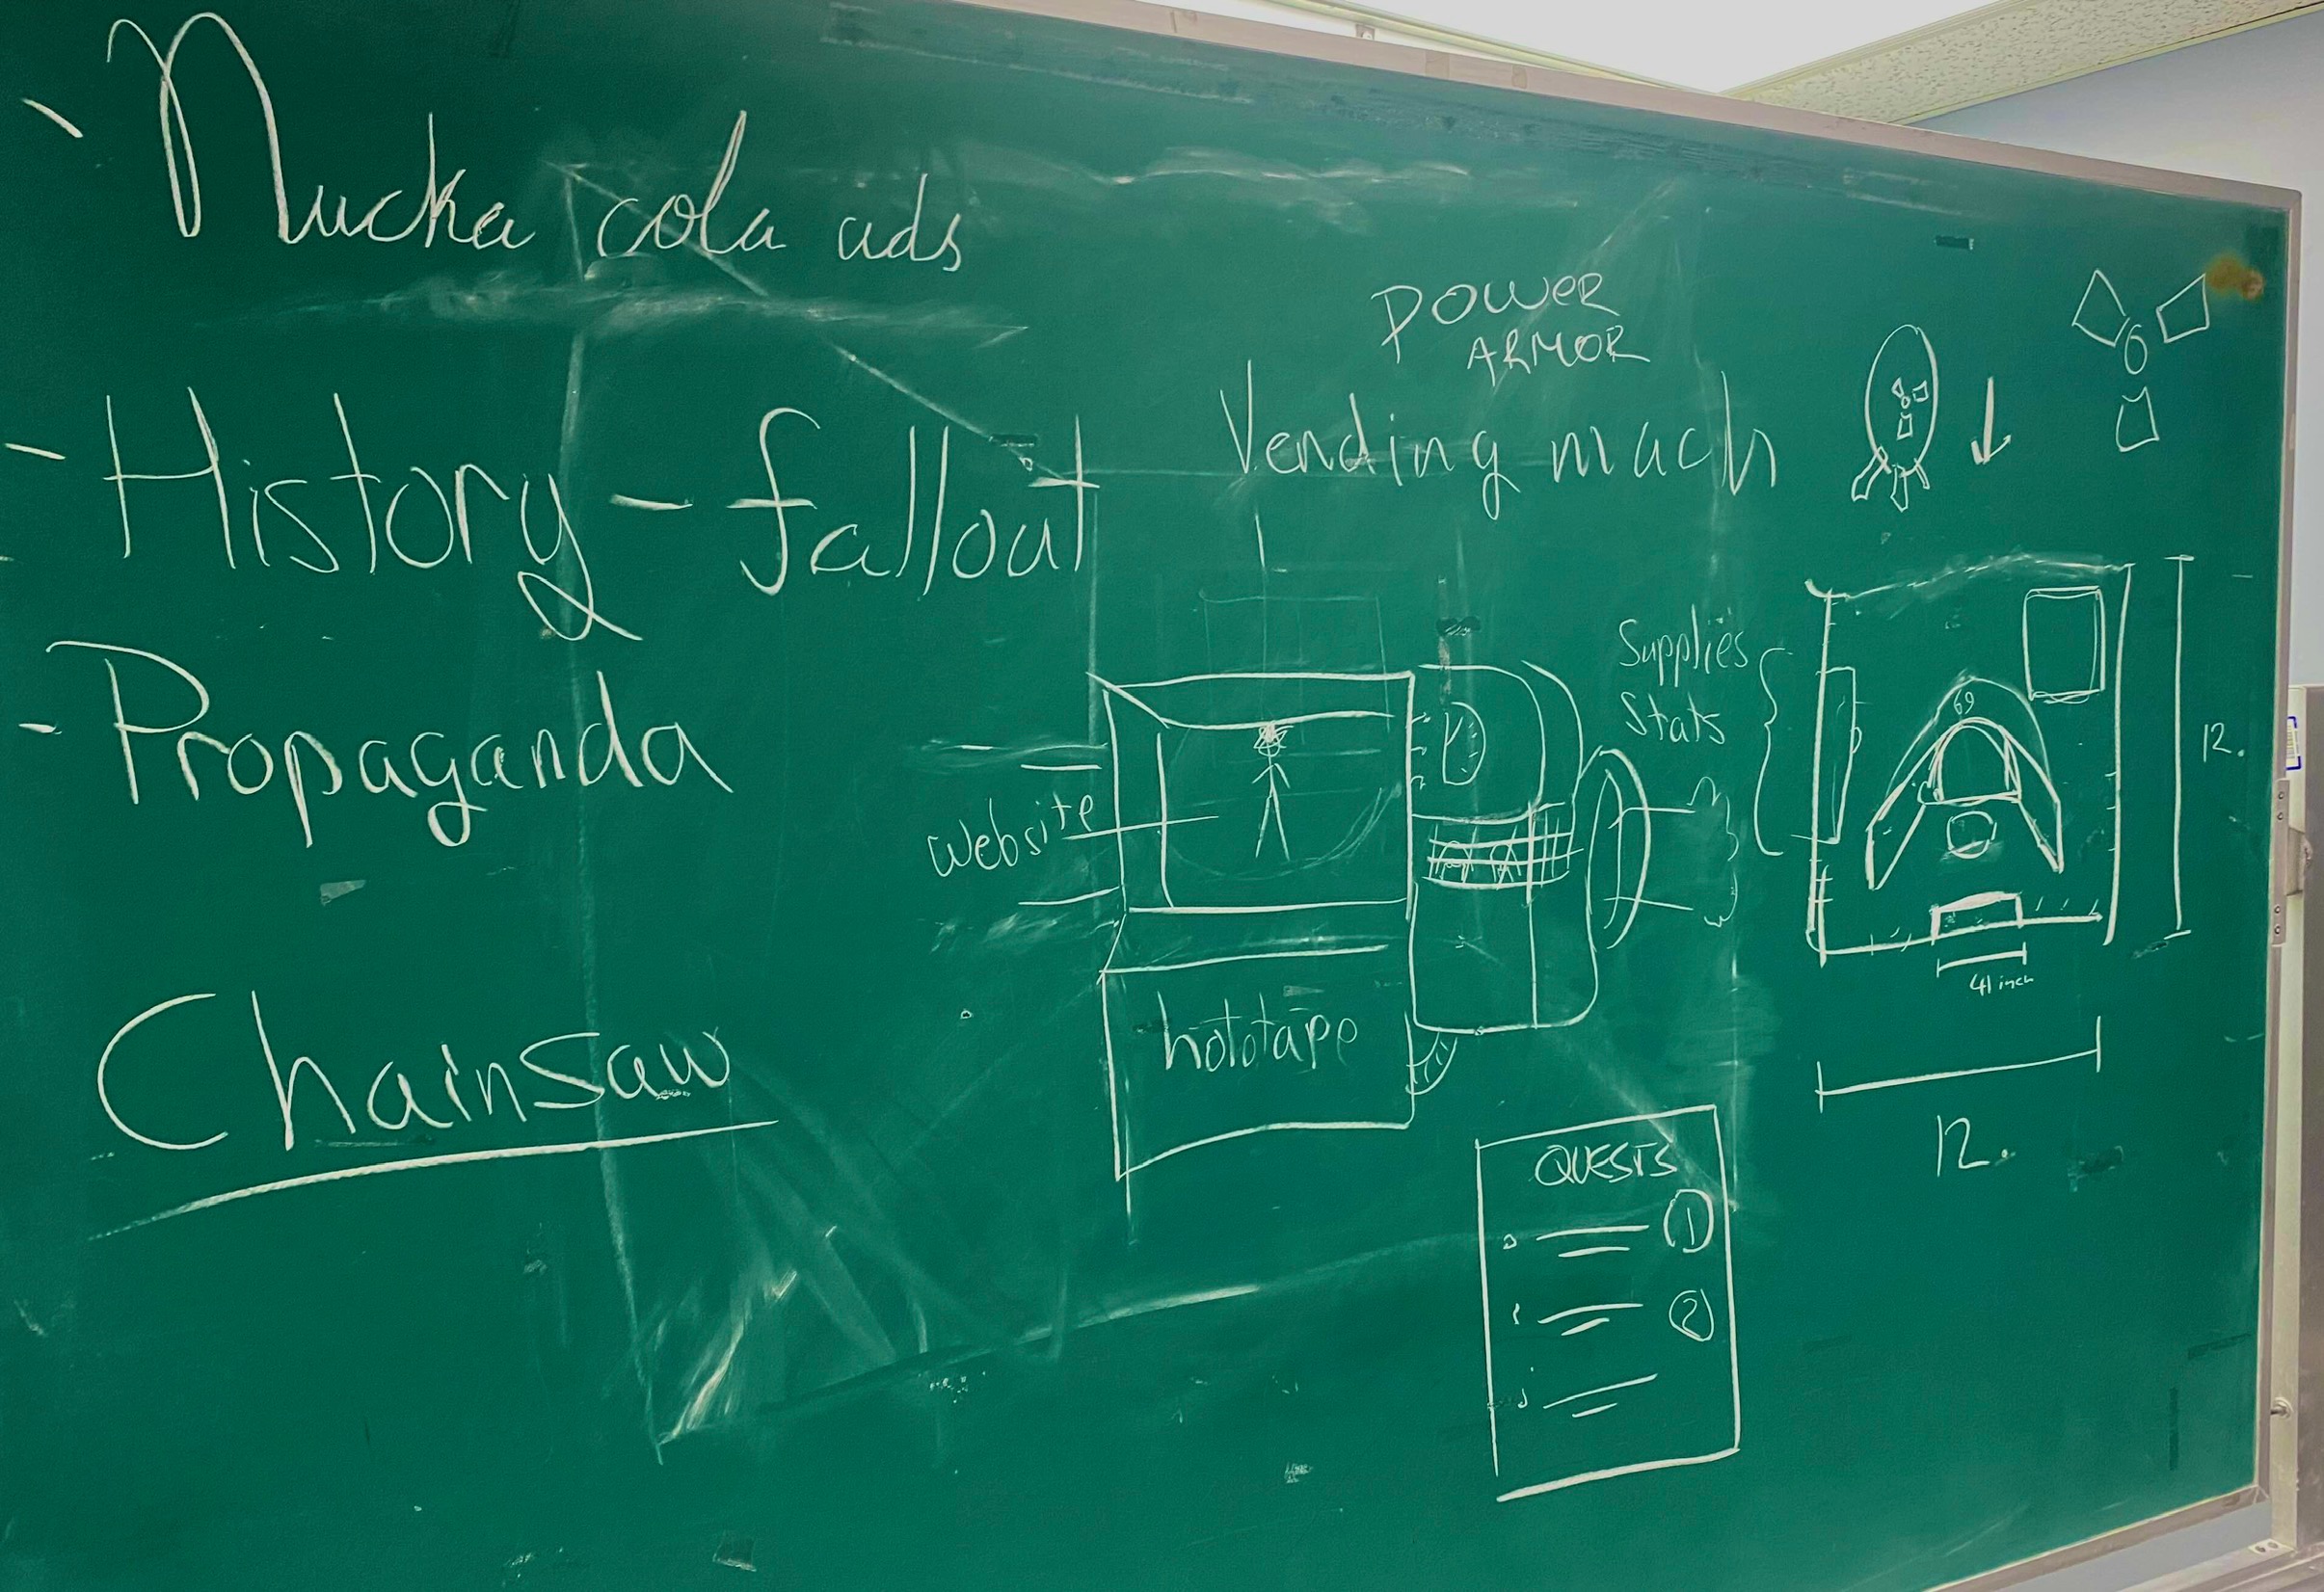 - Nucka cola ads
- History - fallout
- Propaganda
Chainsaw
POWER
ARMOR
Vending mach
Website
hototape
Supplies
Stats
69
12.
41 inch
12.
QUESTS
1
2